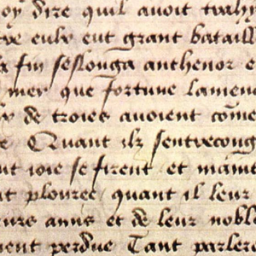 oy dire quil avoit trahy
eulx eut grant bataill
fin sesloinga anthenor e
mer que fortune lamena
de troies avoient come
Quant ilz sentrecong
ioie se firent et maint
plouree quant il leur
amis et de leur noble
perdue Tant parlere